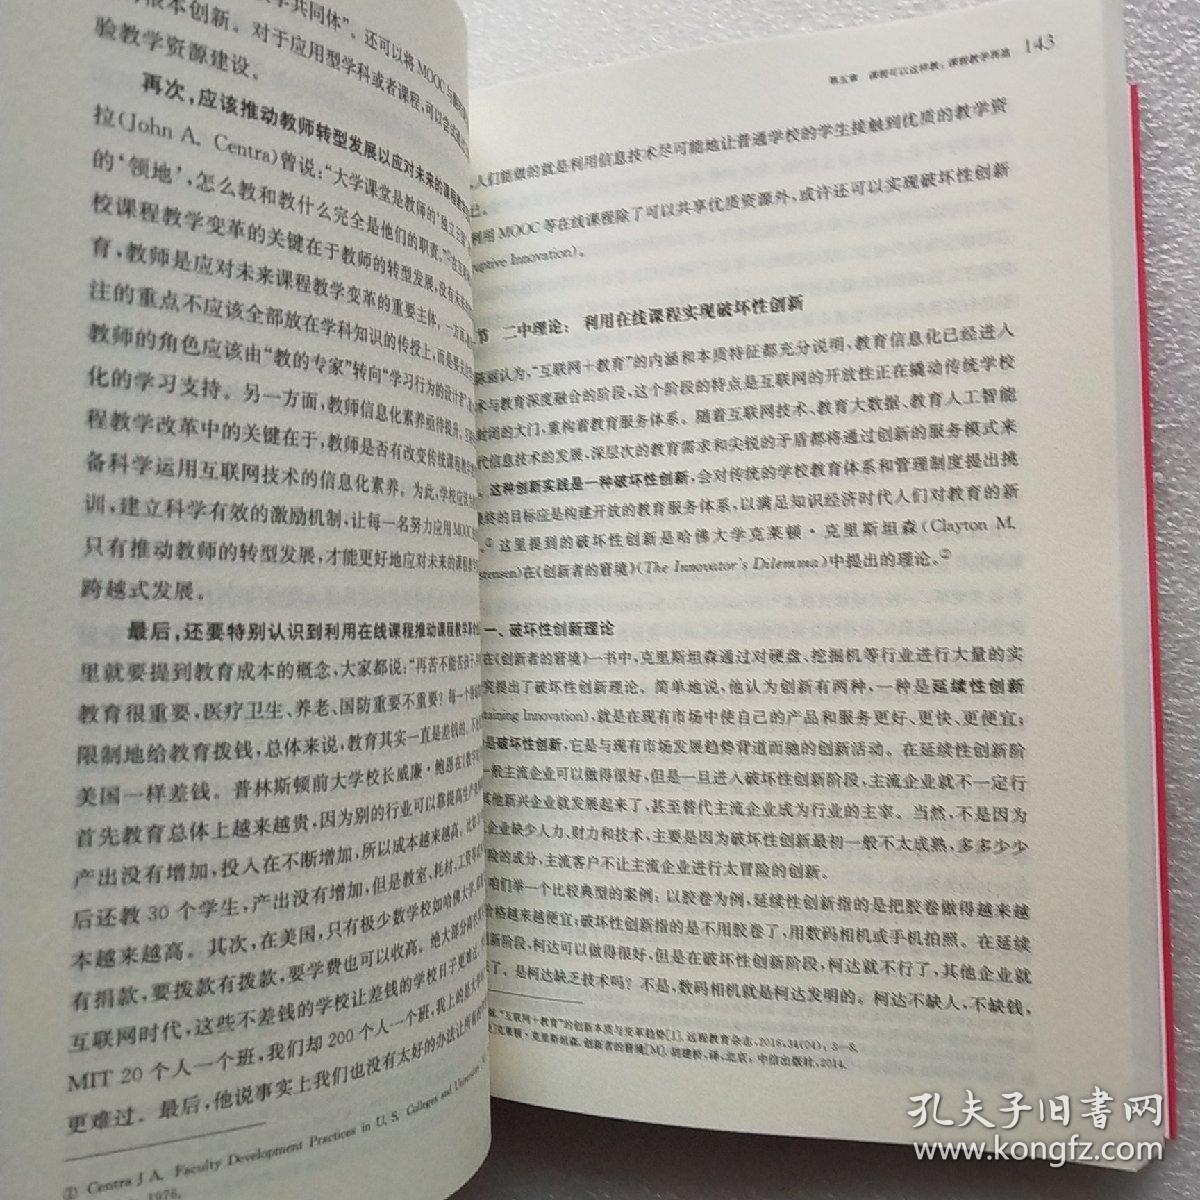 学共同体”。还可以将MOOC与
根本创新。对于应用型学科或者课程,可以尝试
验教学资源建设。
再次,应该推动教师转型发展以应对未来的课程教学
拉(John A. Centra)曾说:“大学课堂是教师的‘独立王国’
的‘领地’,怎么教和教什么完全是他们的职责。”①在互联网
校课程教学变革的关键在于教师的转型发展,没有
育,教师是应对未来课程教学变革的重要主体,一方面,
注的重点不应该全部放在学科知识的传授上,而是要
教师的角色应该由“教的专家”转向“学习行为的设计者”
化的学习支持。另一方面,教师信息化素养亟待提升,
程教学改革中的关键在于,教师是否有改变传统课程教学
备科学运用互联网技术的信息化素养。为此,学校应该
训,建立科学有效的激励机制,让每一名努力应用MOOC
只有推动教师的转型发展,才能更好地应对未来的课程教学
跨越式发展。
最后,还要特别认识到利用在线课程推动课程教学
里就要提到教育成本的概念,大家都说:“再苦不能苦孩子,
教育很重要,医疗卫生、养老、国防重要不重要?每一个
限制地给教育拨钱,总体来说,教育其实一直是差钱的。
美国一样差钱。普林斯顿前大学校长威廉·鲍恩在
首先教育总体上越来越贵,因为别的行业可以靠提高生产
产出没有增加,投入在不断增加,所以成本越来越高。比如
后还教30个学生,产出没有增加,但是教室、耗材、工资等
本越来越高。其次,在美国,只有极少数学校如哈佛大学
有捐款,要拨款有拨款,要学费也可以收高。绝大部分
互联网时代,这些不差钱的学校让差钱的学校日子更难过。
MIT 20个人一个班,我们却200个人一个班,我上的是大
更难过。最后,他说事实上我们也没有太好的办法让所有
① Centra J A. Faculty Development Practices in U. S. Colleges and Universities
1976.
第五章 课程可以这样教:课程教学再造 143
人们能做的就是利用信息技术尽可能地让普通学校的学生接触到优质的教学资
已。
利用MOOC等在线课程除了可以共享优质资源外,或许还可以实现破坏性创新
ruptive Innovation)。
节 二中理论:利用在线课程实现破坏性创新
丽认为,“互联网+教育”的内涵和本质特征都充分说明,教育信息化已经进入
术与教育深度融合的阶段,这个阶段的特点是互联网的开放性正在撬动传统学校
封闭的大门,重构着教育服务体系。随着互联网技术、教育大数据、教育人工智能
代信息技术的发展,深层次的教育需求和尖锐的矛盾都将通过创新的服务模式来
这种创新实践是一种破坏性创新,会对传统的学校教育体系和管理制度提出挑
最终的目标应是构建开放的教育服务体系,以满足知识经济时代人们对教育的新
。①这里提到的破坏性创新是哈佛大学克莱顿·克里斯坦森(Clayton M.
stensen)在《创新者的窘境》(The Innovator's Dilemma)中提出的理论。②
一、破坏性创新理论
在《创新者的窘境》一书中,克里斯坦森通过对硬盘、挖掘机等行业进行大量的实
究提出了破坏性创新理论。简单地说,他认为创新有两种,一种是延续性创新
taining Innovation),就是在现有市场中使自己的产品和服务更好、更快、更便宜;
是破坏性创新,它是与现有市场发展趋势背道而驰的创新活动。在延续性创新阶
一般主流企业可以做得很好,但是一旦进入破坏性创新阶段,主流企业就不一定行
其他新兴企业就发展起来了,甚至替代主流企业成为行业的主宰。当然,不是因为
企业缺少人力、财力和技术,主要是因为破坏性创新最初一般不太成熟,多多少少
险的成分,主流客户不让主流企业进行太冒险的创新。
咱们举一个比较典型的案例:以胶卷为例,延续性创新指的是把胶卷做得越来越
价格越来越便宜;破坏性创新指的是不用胶卷了,用数码相机或手机拍照。在延续
创新阶段,柯达可以做得很好,但是在破坏性创新阶段,柯达就不行了,其他企业就
了。是柯达缺乏技术吗?不是,数码相机就是柯达发明的。柯达不缺人,不缺钱,
丽.“互联网+教育”的创新本质与变革趋势[J].远程教育杂志,2016,34(04):3-8.
]克莱顿·克里斯坦森.创新者的窘境[M].胡建桥,译.北京:中信出版社,2014.
孔夫子旧书网
www.kongfz.com